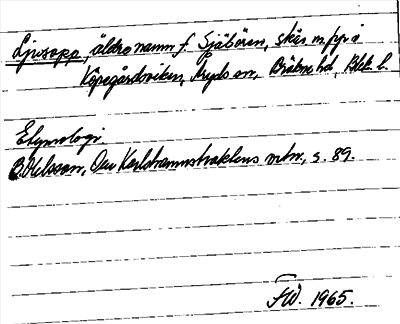 Ljusopp, äldre namn f. Sjäbåren, skär m fyr i
Köpegårdsviken, Åryds sn, Bräkne hd, Blek. l.
Etymologi.
B. Ohlsson, Om Karlshamnstraktens ortn., s. 89.
FW. 1965.